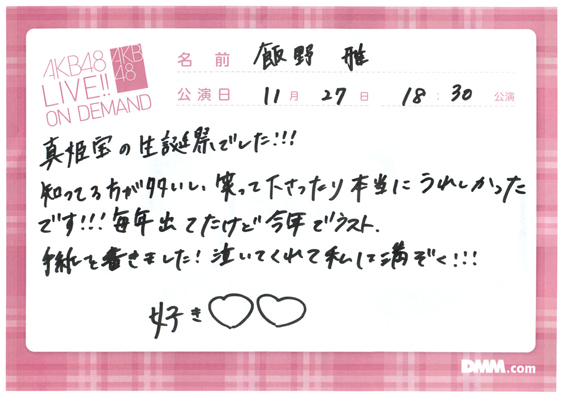 AKB48
LIVE!!
ON DEMAND
AKB
48
名前 飯野 雅
公演日 11月 27日 18:30 公演
真姫宝の生誕祭でした!!!
知ってる方が多いし、笑って下さったり本当にうれしかった
です!!!毎年出てたけど今年でラスト、
手紙を書きました!泣いてくれて私は満ぞく!!!
好き♡♡
DMM.com